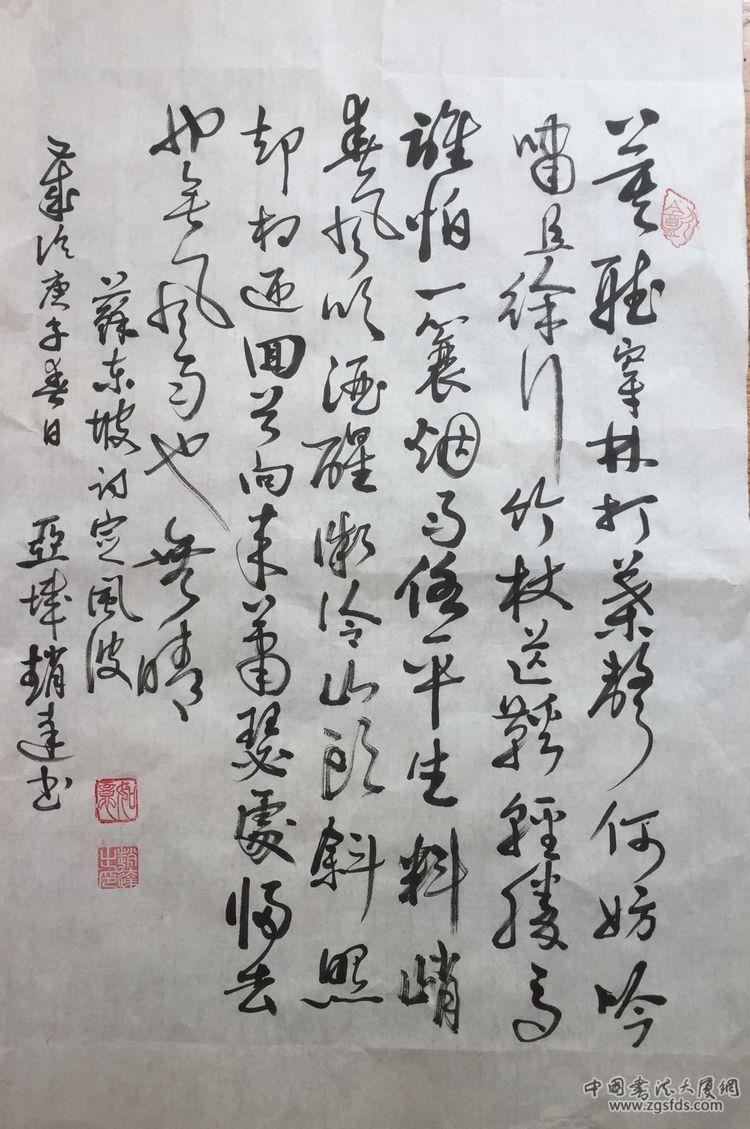 莫聽穿林打葉聲何妨吟
嘯且徐行竹杖芒鞋輕勝馬
誰怕一蓑烟雨任平生料峭
春風吹酒醒微冷山頭斜照
却相迎囬首向来蕭瑟處歸去
也無風雨也無晴
蘇東坡詞定風波
歲次庚子春日 亞 趙達书
趙達之印
中国书法大厦網
www.zgsfds.com